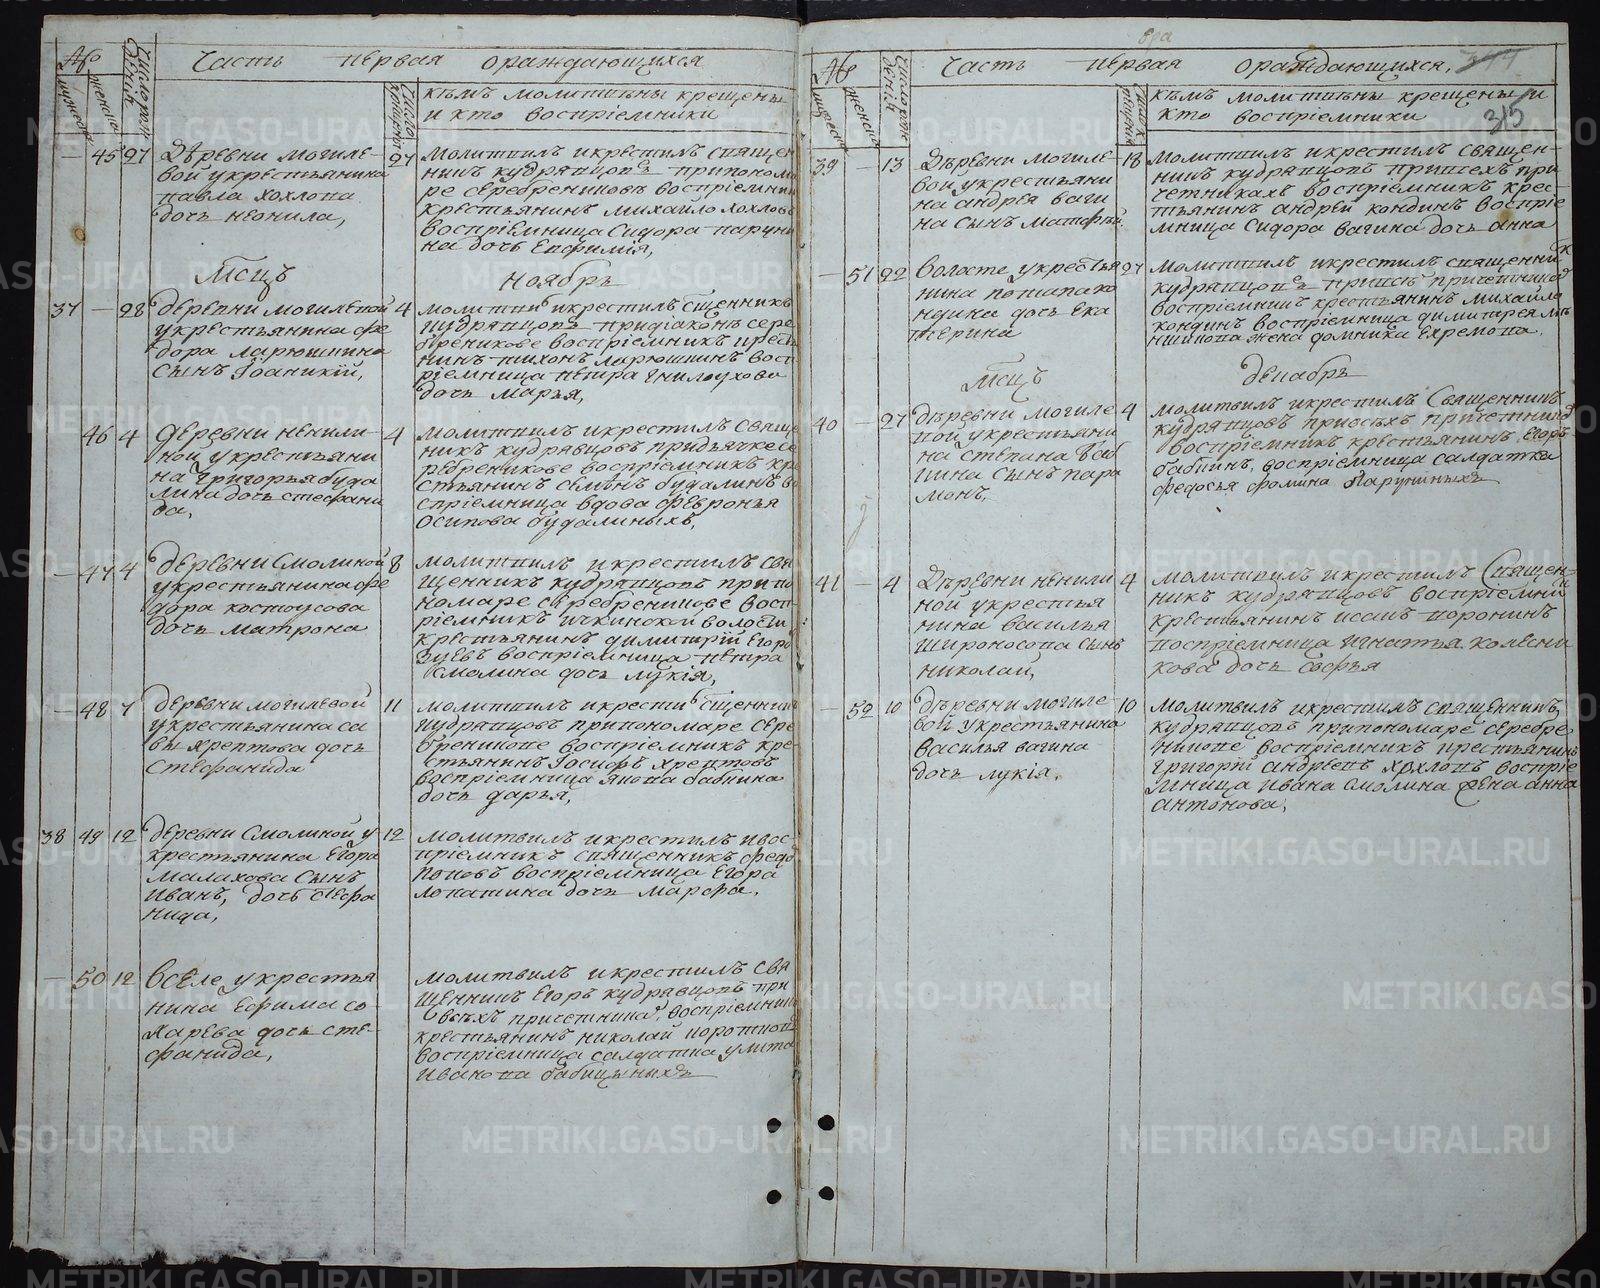 Часть первая ораждающихся
№
мужеска
женска
число рож
дения
число
крещения
кѣмъ молитвены крещены
и кто воспрiемники
— 45 27 Дѣревни могиле-
вой укрестьянина
павла хохлова
дочь неонила,
27 молитвилъ икрестилъ священ
никъ кудрявцовъ припонома
ре серебрениковъ воспрiемник
крестьянинъ михайло хохловъ
воспрiемница Сидора паруни
на дочь Евфимiя,
Мсцъ Ноябрь
37 — 28 деревни могилевой
укрестьянина фе
дора ларюшкина
сынъ Iоаникiй,
4 молитвилъ икрестилъ сщенникъ
кудрявцовъ придiаконѣ сере
бреникове воспрiемникъ крест
нинъ тихонъ ларюшкинъ восп
рiемница петра гнилоухова
дочь марья,
46 4 деревни ненили-
ной укрестьяни
на григорья буда
лина дочь стефани
да,
4 молитвилъ икрестилъ свяще
никъ кудрявцовъ придьячке се
ребреникове воспрiемникъ кре
стьянинъ семенъ будалинъ во
спрiемница вдова февронья
осипова будалиныхъ,
— 47 4 деревни Смолиной
укрестьянина фе
дора костоусова
дочь матрона
8 молитвилъ икрестилъ свя
щенникъ кудрявцовъ при по
номаре серебреникове восп
рiемникъ ичкинской волости
крестьянинъ димитрiй Егоро
зуевъ воспрiемница петра
Смолина дочь лукiя,
— 48 7 деревни могилевой
укрестьянина са
вы хрептова дочь
Стефанида
11 молитвилъ икрести сщенникъ
кудрявцовъ припономаре сере
бреникове воспрiемникъ кре-
стьянинъ Iосифъ хрептовъ
воспрiемница якова бабкина
дочь дарья,
38 49 12 деревни Смолиной у
крестьянина Егора
малахова Сынъ
иванъ, дочь стефа
нида,
12 молитвилъ икрестилъ ивос-
прiемникъ священникъ федо
поповъ воспрiемница Егора
лопатина дочь марфа,
— 50 12 вселе укрестья
нина Ефима со
ларева дочь сте-
фанида,
молитвилъ икрестилъ свя
щенникъ Егоръ кудрявцовъ при
всѣхъ причетника, воспрiемник
крестьянинъ николай коротков
воспрiемница салдатка улита
Иванова бабицыныхъ
Часть первая ораждающихся,
344
315
№
мужеска
женска
число рож
денiя
число
крещения
кѣмъ молитвены крещены и
кто воспрiемники
39 — 13 Дѣревни могиле-
вой укрестьяни
на андрея ваги
на сынъ матфей.
18 Молитвилъ икрестилъ священ-
никъ кудрявцовъ привсехъ при
четникахъ воспрiемникъ крес-
тьянинъ андрей кондинъ воспрiе
мница Сидора вагина дочь анна
— 51 22 Волосте укрестья
нина потапа ко
ндина дочь ека
терина
27 молитвилъ икрестилъ священник
кудрявцовъ привсѣ причетника
воспрiемникъ крестьянинъ михайло
кондинъ воспрiемница димитрея
жена домника Ехремова,
Мсцъ декабрь
40 — 27 дѣревни могиле
вой укрестьяни
на степана баб
кина сынъ пара
монъ,
4 молитвилъ икрестилъ Священникъ
кудрявцовъ привсѣхъ причетника
воспрiемникъ крестьянинъ, Егоръ
бабкинъ, воспрiемница салдатка
федосья фомина Паруниныхъ
41 — 4 Дѣревни ненили
ной укрестья
нина василья
широносова сынъ
николай,
4 молитвилъ икрестилъ Священ-
никъ кудрявцовъ воспрiемник
крестьянинъ исакъ поронинъ
воспрiемница игнатья колесни
кова дочь софья
— 52 10 дѣревни могиле-
вой укрестьянина
василья вагина
дочь лукiя,
10 Молитвилъ икрестилъ священникъ
кудрявцовъ припономаре серебре
никове воспрiемникъ крестьянинъ
григорiй андреевъ хохловъ воспрiе
мница ивана Смолина жена анна
антонова,
METRIKI.GASO-URAL.RU